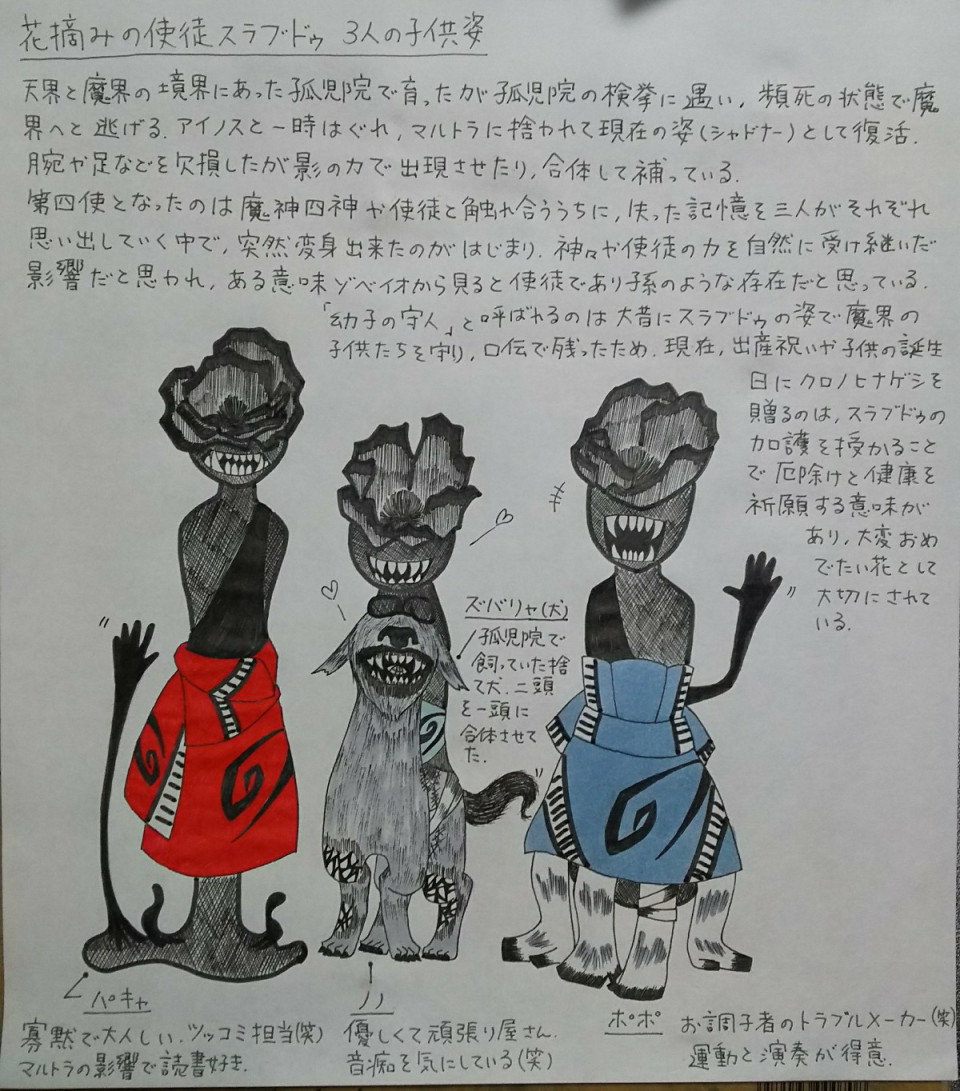 花摘みの使徒スラブドゥ 3人の子供姿
天界と魔界の境界にあった孤児院で育ったが孤児院の検挙に遇い, 頻死の状態で魔
界へと逃げる. アイノスと一時はぐれ, マルトラに捨われて現在の姿(シャドナー)として復活.
腕や足などを欠損したが影の力で出現させたり, 合体して補っている.
第四使となったのは魔神四神や使徒と触れ合ううちに, 失った記憶を三人がそれぞれ
思い出していく中で, 突然変身出来たのがはじまり. 神々や使徒の力を自然に受け継いだ
影響だと思われ, ある意味ゾベイオから見ると使徒であり子孫のような存在だと思っている.
「幼子の守人」と呼ばれるのは大昔にスラブドゥの姿で魔界の
子供たちを守り, 口伝で残ったため. 現在, 出産祝いや子供の誕生
日にクロノヒナゲシを
贈るのは, スラブドゥの
加護を授かること
で厄除けと健康を
祈願する意味が
あり, 大変おめ
でたい花として
大切にされて
いる.
ズバリャ(犬)
孤児院で
飼っていた捨
て犬. 二頭
を一頭に
合体させて
た.
パキャ
寡黙で大人しい. ツッコミ担当(笑)
マルトラの影響で読書好き.
ノノ
優しくて頑張り屋さん.
音痴を気にしている(笑)
ポポ
お調子者のトラブルメーカー(笑)
運動と演奏が得意.